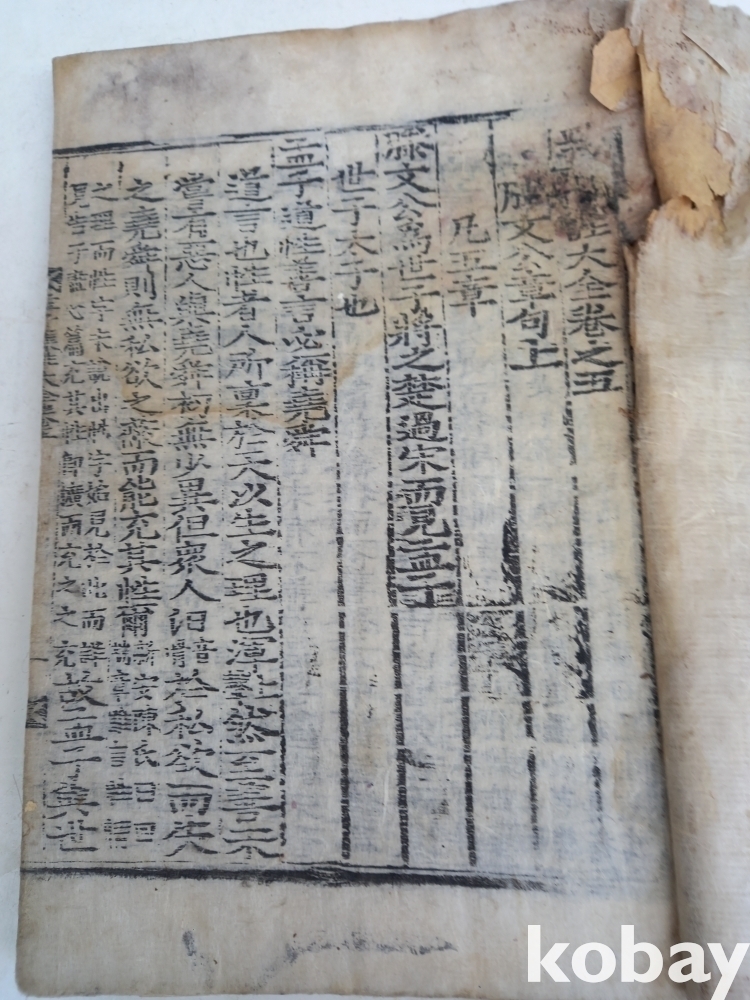 大全卷之五
滕文公章句上
凡五章
滕文公爲世子將之楚過宋而見孟子
世子太子也
孟子道性善言必稱堯舜
道言也性者人所稟於天以生之理也渾然至善未
嘗有惡人與堯舜初無少異但衆人汩於私欲而失
之堯舜則無私欲之蔽而能充其性爾新安陳氏曰四
之理而性字未說出性字始見於此而詳
見告子盡心篇充其性卽擴而充之之充
故孟子與世
kobay